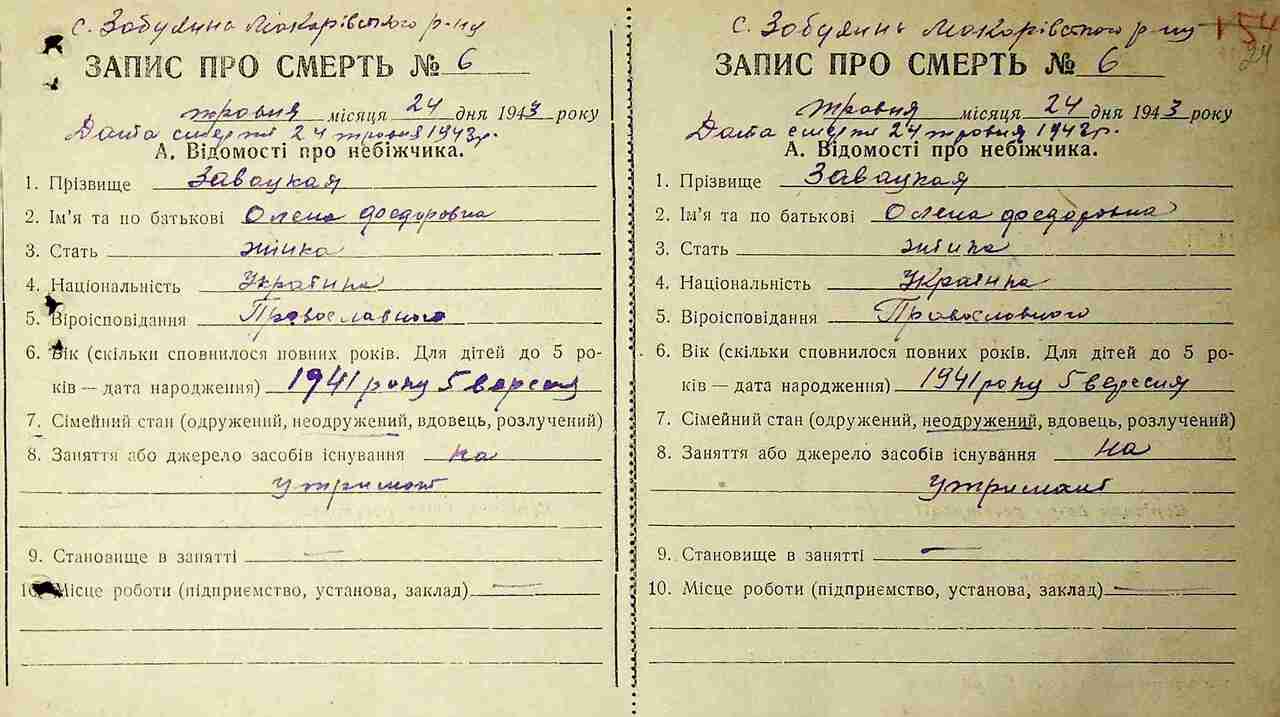 с. Забуяння Макарівського р-ну
ЗАПИС ПРО СМЕРТЬ № 6
травня місяця 24 дня 1943 року
Дата смерті 24 травня 1943 р.
А. Відомості про небіжчика.
1. Прізвище Завацкая
2. Ім'я та по батькові Олена Федоровна
3. Стать жінка
4. Національність Україна
5. Віроісповідання Православного
6. Вік (скільки сповнилося повних років. Для дітей до 5 ро-
ків — дата народження) 1941 року 5 вересня
7. Сімейний стан (одружений, неодружений, вдовець, розлучений)
8. Заняття або джерело засобів існування на
утримані
9. Становище в занятті —
10. Місце роботи (підприємство, установа, заклад) —
с. Забуяння Макарівського р-ну 154
24
ЗАПИС ПРО СМЕРТЬ № 6
травня місяця 24 дня 1943 року
Дата смерті 24 травня 1943 р.
А. Відомості про небіжчика.
1. Прізвище Завацкая
2. Ім'я та по батькові Олена Федоровна
3. Стать жінка
4. Національність Україна
5. Віроісповідання Православного
6. Вік (скільки сповнилося повних років. Для дітей до 5 ро-
ків — дата народження) 1941 року 5 вересня
7. Сімейний стан (одружений, неодружений, вдовець, розлучений)
8. Заняття або джерело засобів існування на
утримані
9. Становище в занятті —
10. Місце роботи (підприємство, установа, заклад) —